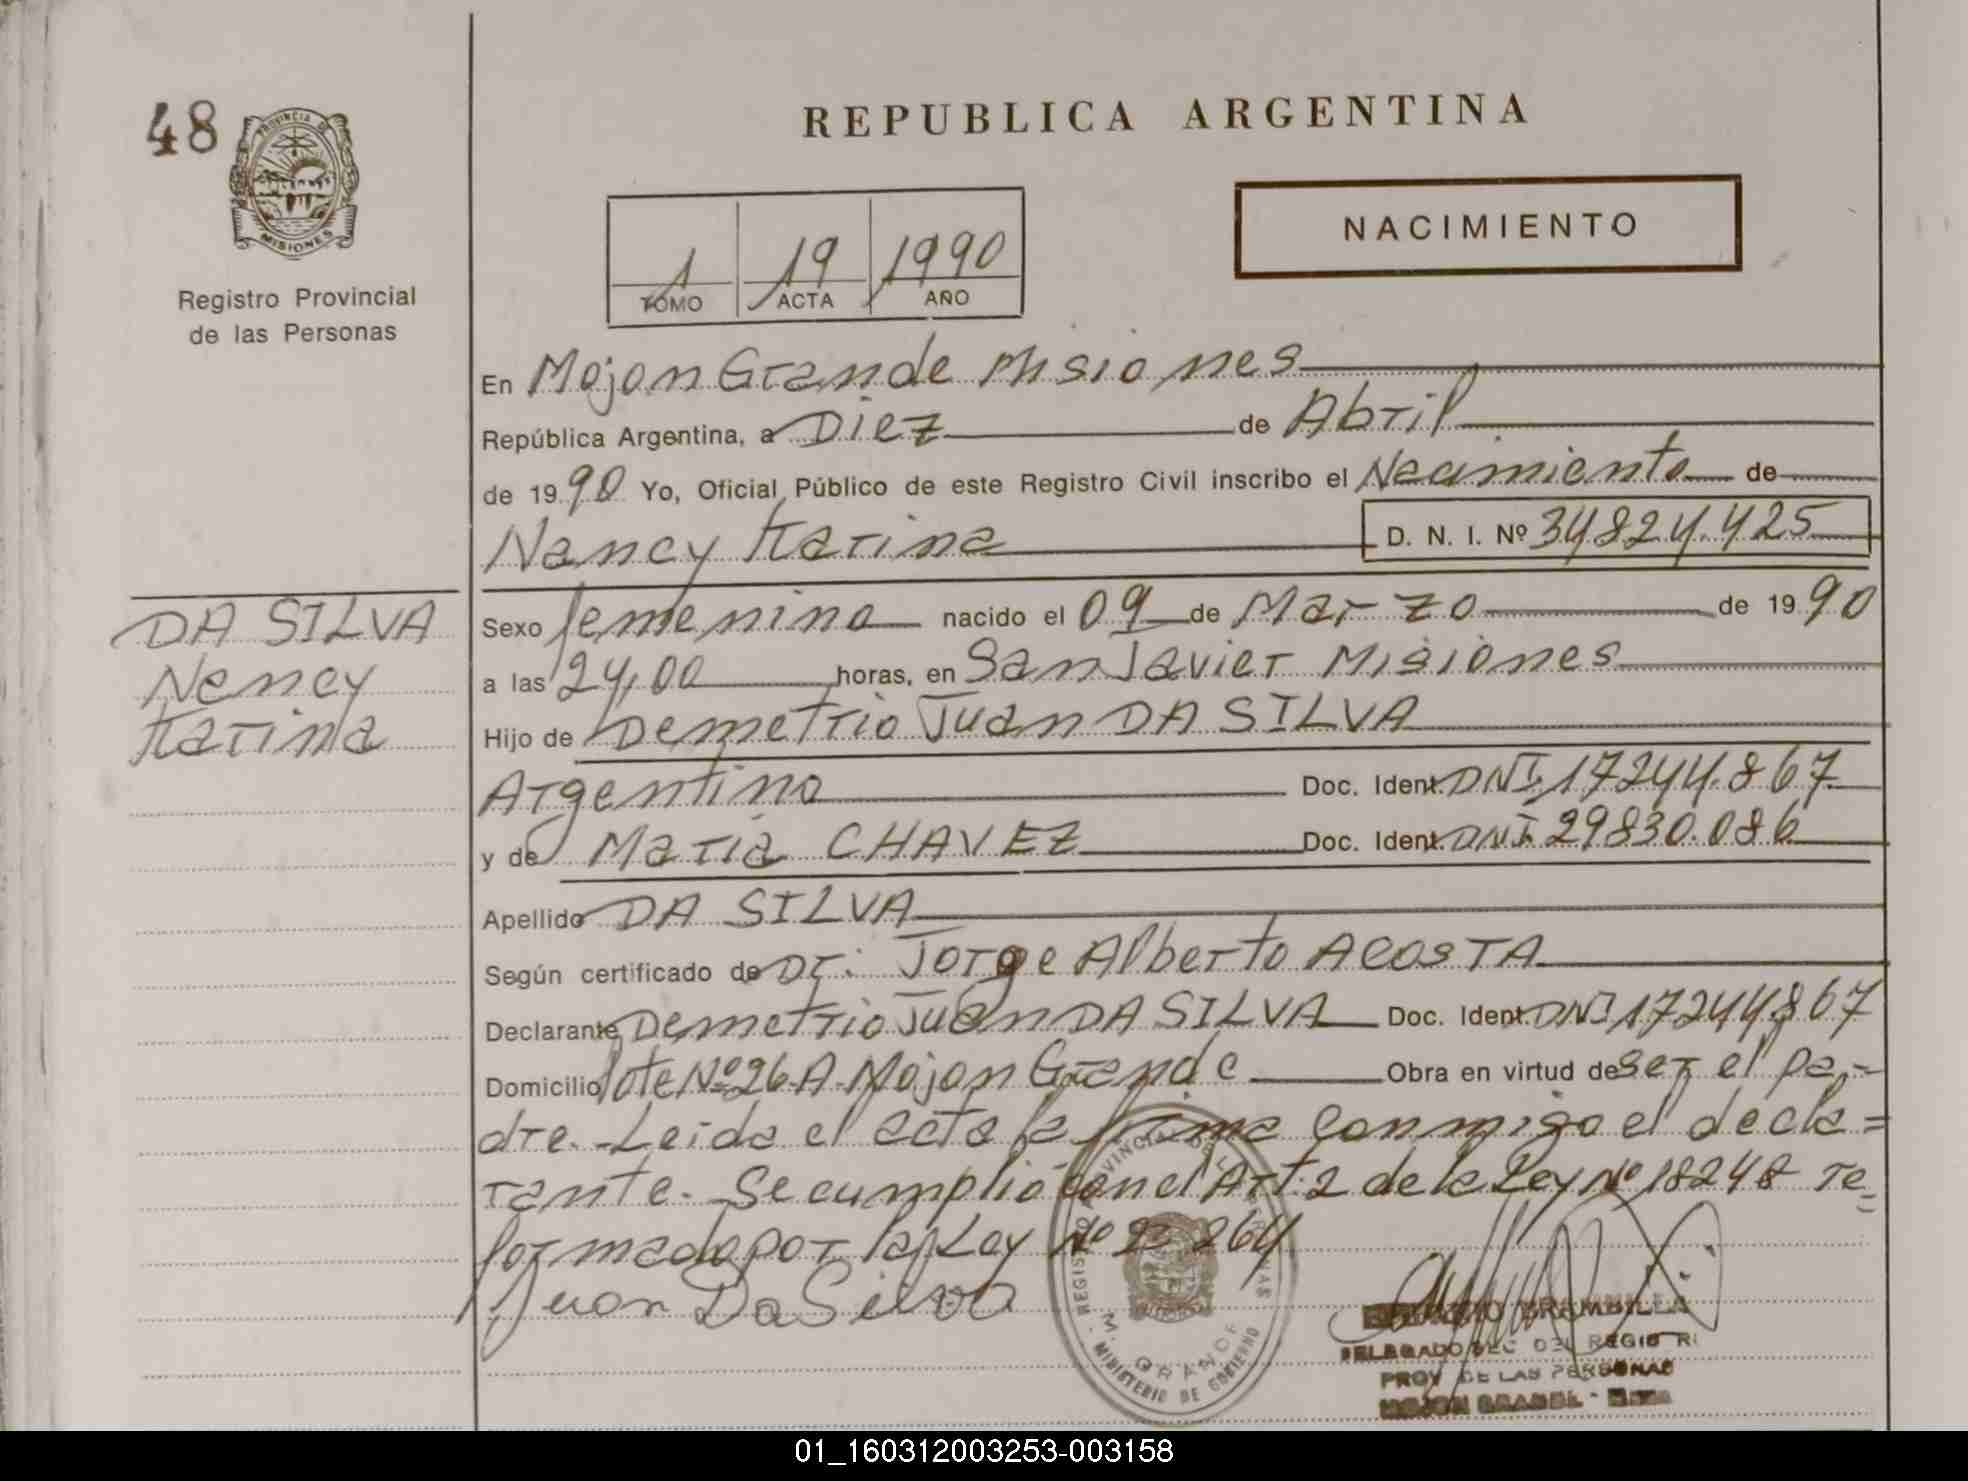 48
PROVINCIA DE
MISIONES
Registro Provincial
de las Personas
REPUBLICA ARGENTINA
NACIMIENTO
1 19 1990
TOMO ACTA AÑO
En Mojon Grande Misiones
República Argentina, a Diez de Abril
de 1990 Yo, Oficial Público de este Registro Civil inscribo el Nacimiento de
Nancy Karina D. N. I. Nº 34824.425
DA SILVA
Nancy
Karina
Sexo femenino nacido el 09 de Marzo de 1990
a las 24,00 horas, en San Javier Misiones
Hijo de Demetrio Juan DA SILVA
Argentino Doc. Ident. DNI. 17244.867
y de Maria CHAVEZ Doc. Ident. DNI. 29830.086
Apellido DA SILVA
Según certificado de Dr. Jorge Alberto ACOSTA
Declarante Demetrio Juan DA SILVA Doc. Ident. DNI 17244867
Domicilio lote Nº 26-A-Mojon Grande Obra en virtud de ser el pa-
dre.-Leida el acta la firma conmigo el decla=
rante.-Se cumplió con el Art.2 de la Ley Nº 18248 re=
formado por la Ley Nº 264
Juan Da Silva
REGISTRO PROVINCIAL DE LAS PERSONAS
M. GRANDE
MINISTERIO DE GOBIERNO
BRAMBILLA
DELEGADO DEL REGISTR
PROV DE LAS PERSONAS
MOJON GRANDE -
01_160312003253-003158